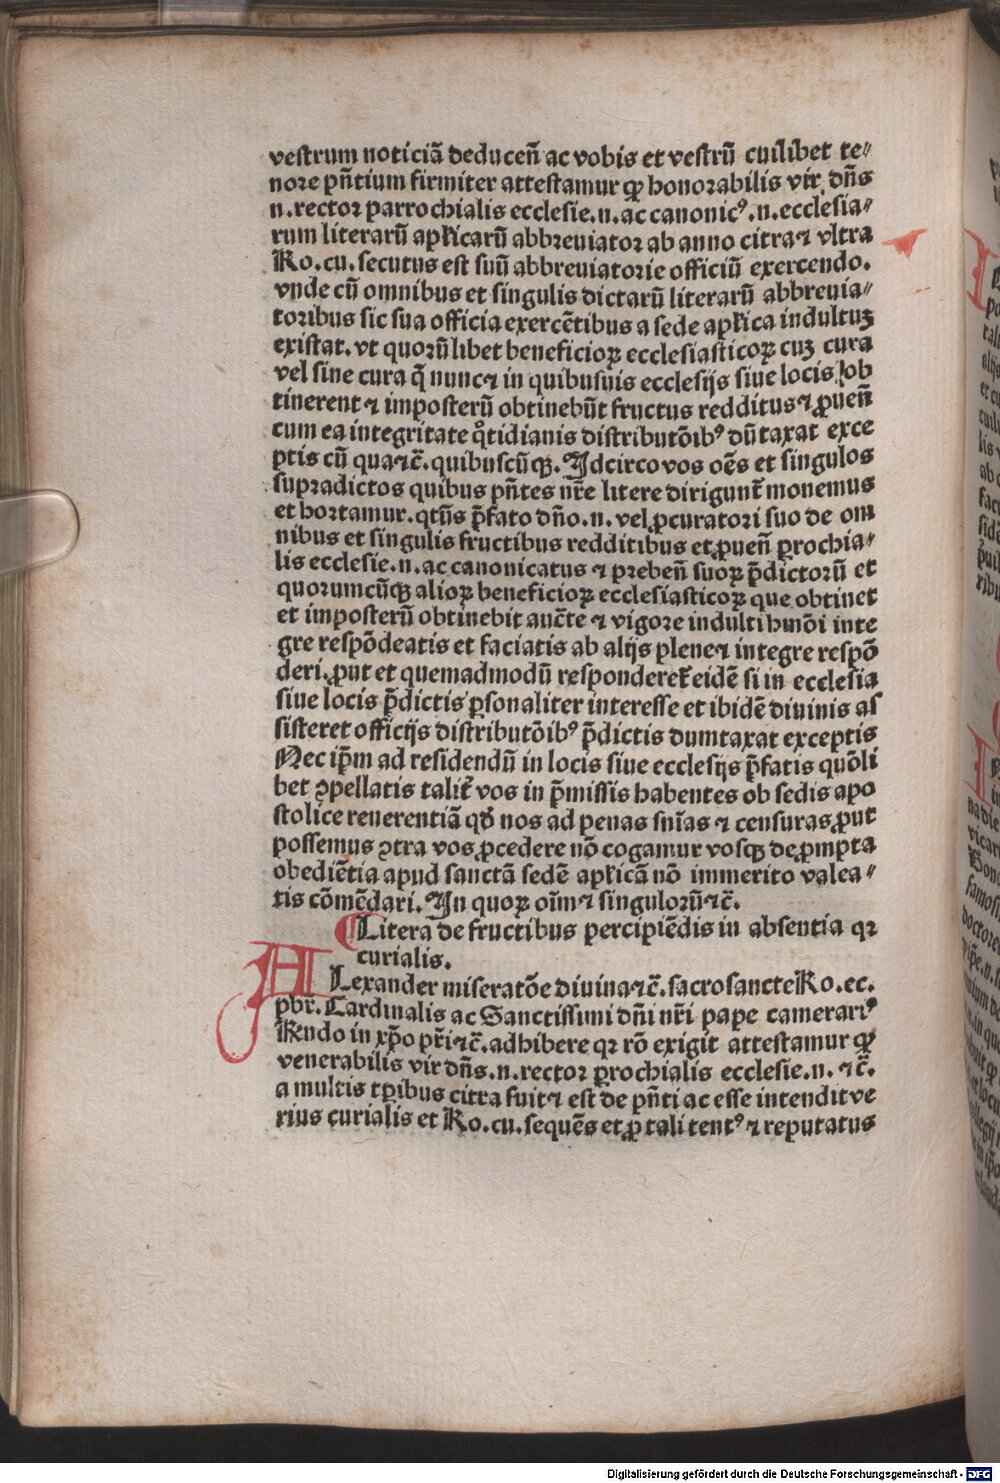 vestrum noticiā deduceñ ac vobis et vestrū cuilibet te⸗
nore pñtium firmiter attestamur ꝙ honorabilis vir dñs
n. rector parrochialis ecclesie. n. ac canonicꝰ. n. ecclesia⸗
rum literarū apl̄icarū abbreuiator ab anno citra ⁊ vltra
Ro. cu. secutus est suū abbreuiatorie officiū exercendo.
vnde cū omnibus et singulis dictarū literarū abbreuia⸗
toribus sic sua officia exercētibus a sede apl̄ica indultuꝫ
existat. vt quorūlibet beneficioꝝ ecclesiasticoꝝ cuꝫ cura
vel sine cura q̄ nunc ⁊ in quibusuis ecclesijs siue locis ob
tinerent ⁊ imposterū obtinebūt fructus redditus ⁊ ꝓueñ
cum ea integritate q̊tidianis distributōibꝰ dūtaxat exce
ptis cū qua ⁊c̄. quibuscūqꝫ. Idcirco vos oēs et singulos
supradictos quibus pñtes nr̄e litere dirigunt᷑ monemus
et hortamur. qt̄ijs p̄fato dño. n. vel ꝓcuratori suo de om
nibus et singulis fructibus redditibus et ꝓueñ ꝑrochia⸗
lis ecclesie. n. ac canonicatus ⁊ prebeñ suoꝝ p̄dictorū et
quorumcūqꝫ alioꝝ beneficioꝝ ecclesiasticoꝝ que obtinet
et imposterū obtinebit auc̄te ⁊ vigore indulti hmōi inte
gre respōdeatis et faciatis ab alijs plene ⁊ integre respō
deri. ꝓut et quemadmodū responderet᷑ eidē si in ecclesia
siue locis p̄dictis ꝑsonaliter interesse et ibidē diuinis as
sisteret officijs distributōibꝰ p̄dictis dumtaxat exceptis
Nec ip̄m ad residendū in locis siue ecclesijs p̄fatis quōli
bet ꝯpellatis talit᷑ vos in p̄missis habentes ob sedis apo
stolice reuerentiā qd̛ nos ad penas snīas ⁊ censuras ꝓut
possemus ꝯtra vos ꝓcedere nō cogamur vosqꝫ de ꝓmpta
obediētia apud sanctā sedē apl̄icā nō immerito valea⸗
tis cōmēdari. In quoꝝ oīm ⁊ singulorū ⁊c̄.
¶ Litera de fructibus percipiēdis in absentia qꝛ
curialis.
ALexander miseratōe diuina ⁊c̄. sacrosancte Ro. ec.
pbr̄. Cardinalis ac Sanctissimi dñi nr̄i pape camerariꝰ
Rendo in xp̄o pr̄i ⁊c̄. adhibere qꝛ rō exigit attestamur ꝙ
venerabilis vir dñs. n. rector ꝑrochialis ecclesie. n. ⁊ c̄.
a multis tꝑibus citra fuit ⁊ est de pñti ac esse intendit ve
rius curialis et Ro. cu. sequēs et ꝓ tali tentꝰ ⁊ reputatus
Digitalisierung gefördert durch die Deutsche Forschungsgemeinschaft - DFG